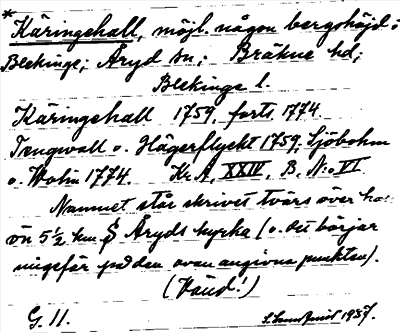 * Käringehall, möjl. någon bergshöjd i
Blekinge; Åryd sn.; Bräkne hd;
Blekinge l.
Käringehall 1759, forts. 1774.
Tengwall o. Hägerflyckt 1759, Sjöbohm
o. Wolin 1774. Kr. A. XXIV, B. N:o VI
Namnet står skrivet tvärs över
ön 5½ km. S Åryds kyrka (o. det börjar
ungefär på den ovan angivna punkten).
(Vänd!)
G. 11. 1937.